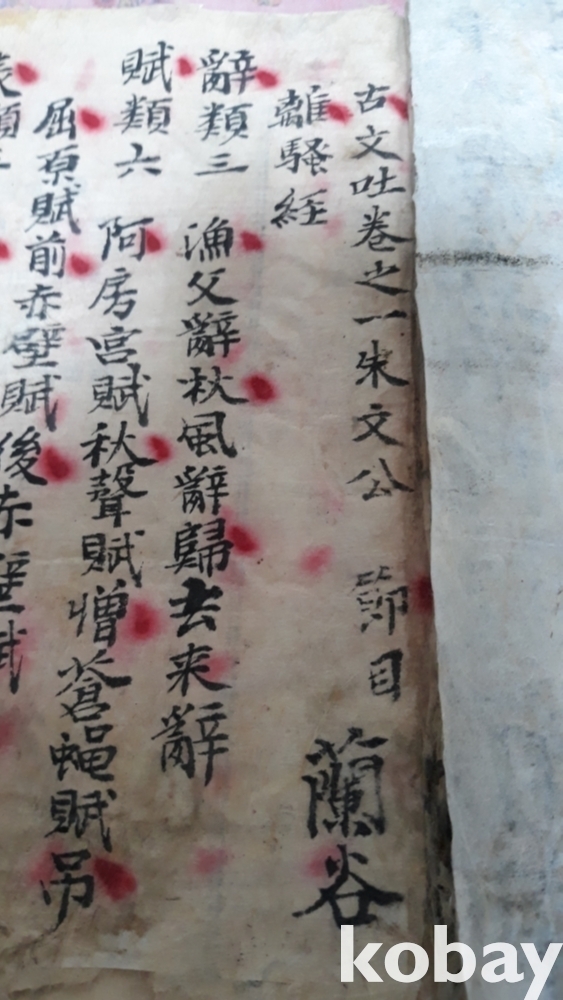 古文吐卷之一朱文公 節目
離騷經 蘭谷
辭類三 漁父辭秋風辭歸去来辭
賦類六 阿房宮賦秋聲賦憎蒼蝿賦吊
屈原賦前赤壁賦後赤壁賦
kobay